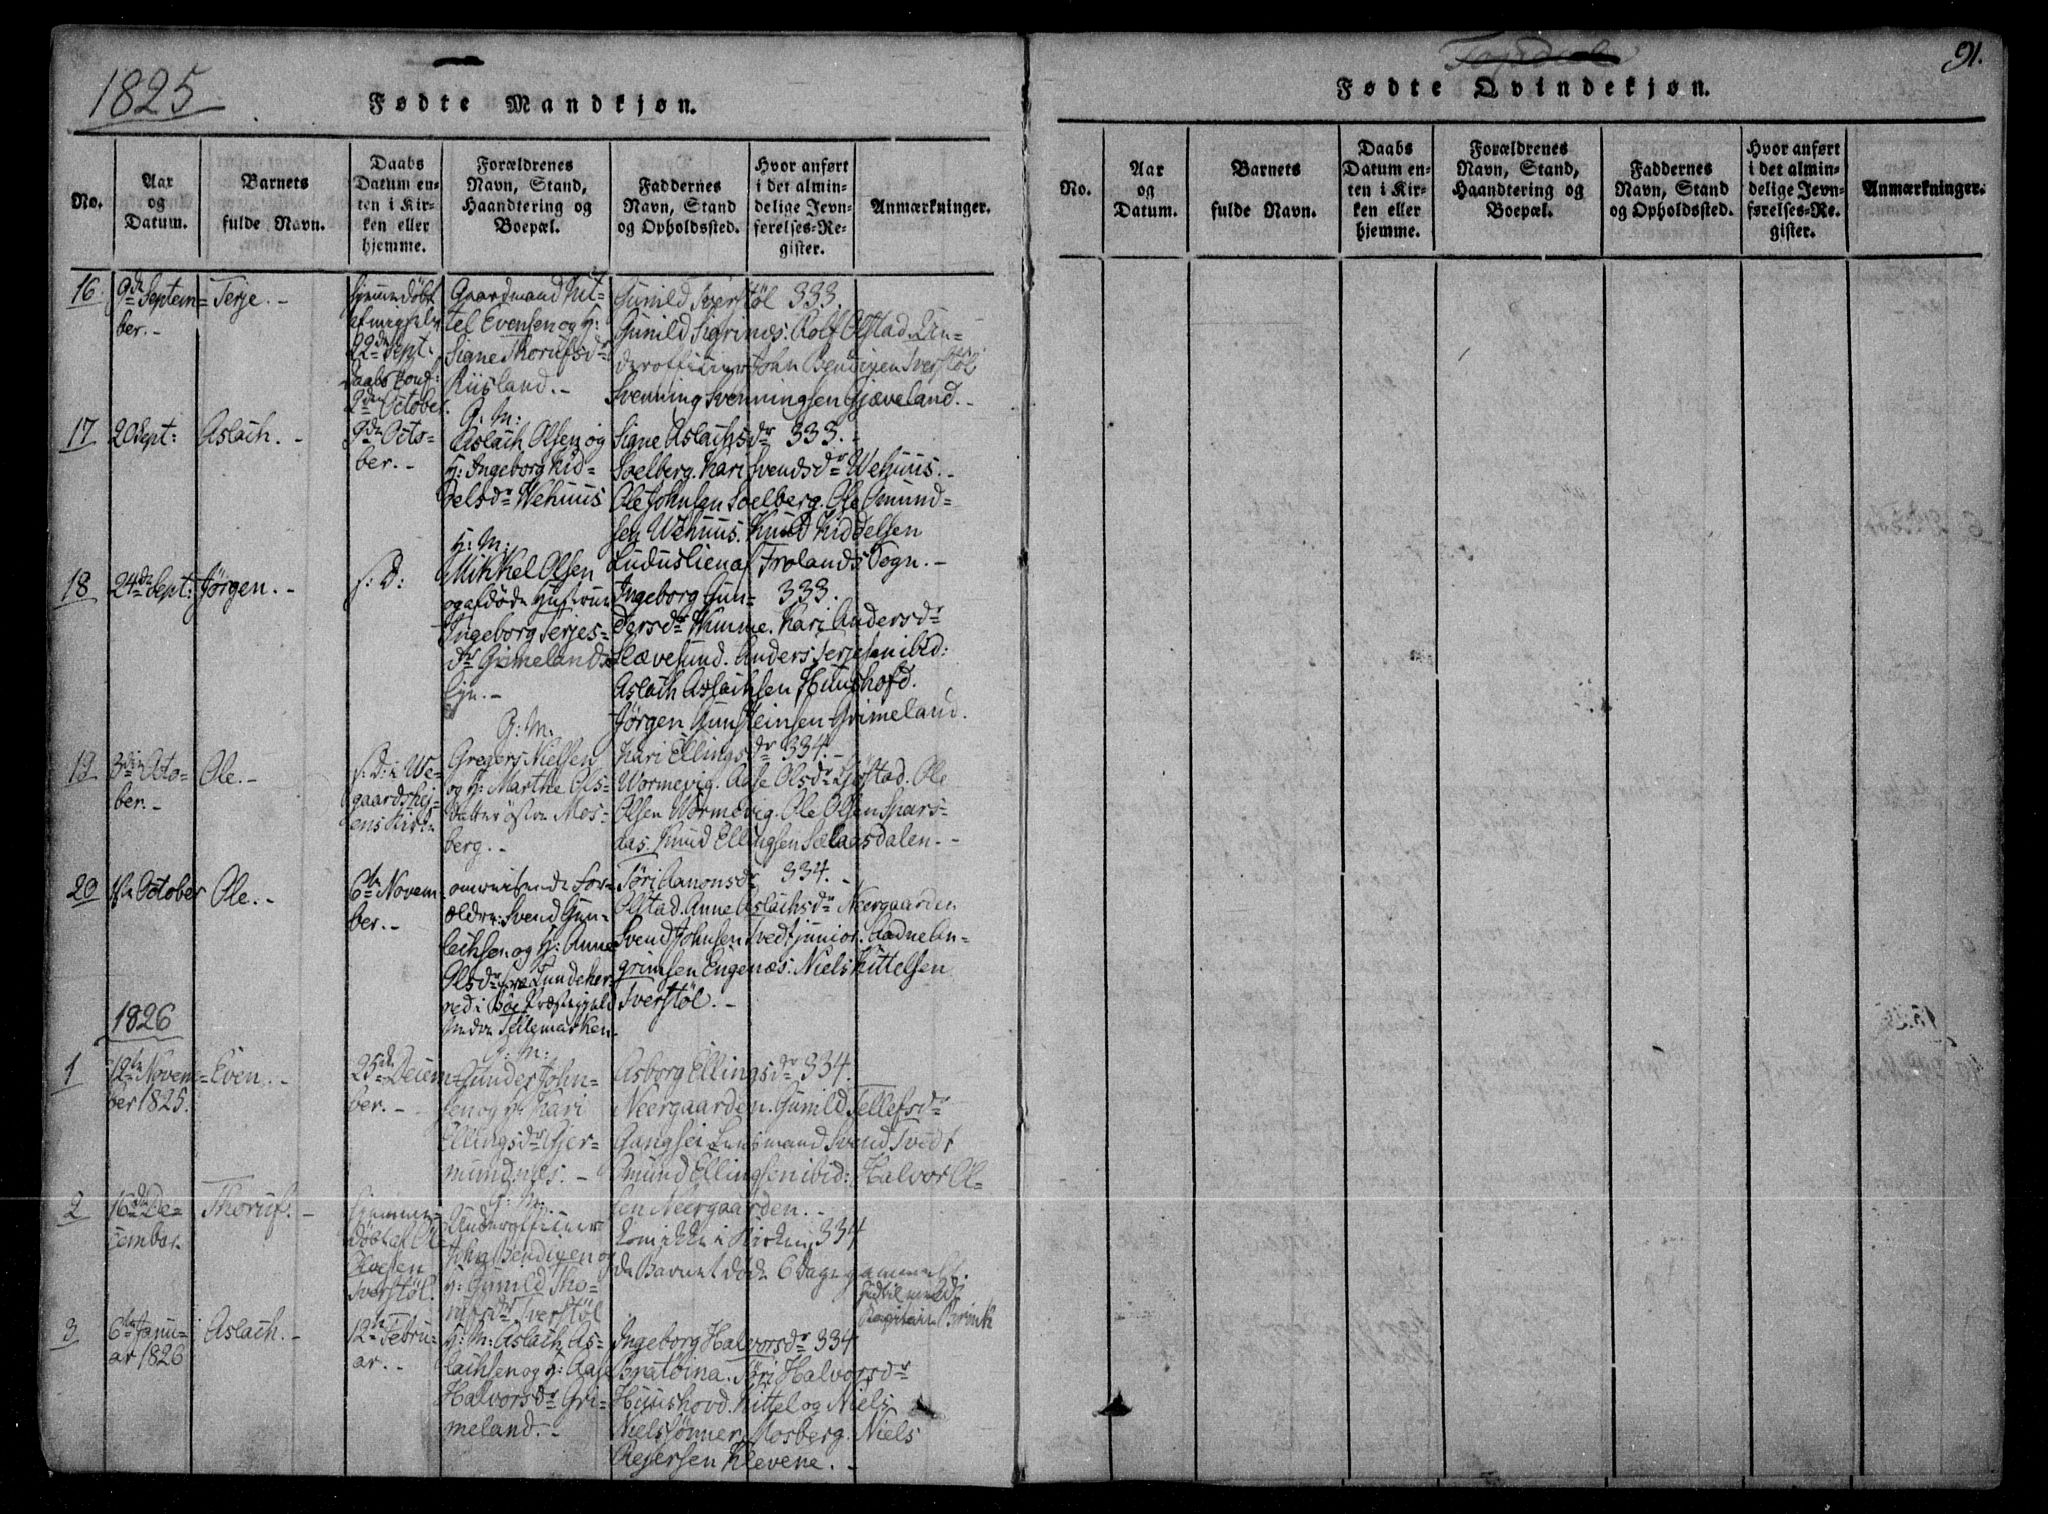 1825
Fødte Mandkjøn.
No.
Aar
og
Datum.
Barnets
fulde Navn.
Daabs
Datum en-
ten i Kir-
ken eller
hjemme.
Forældrenes
Navn, Stand,
Haandtering og
Boepæl.
Faddernes
Navn, Stand
og Opholdssted.
Hvor anført
i det almin-
delige Jevn-
førelses-Re-
gister.
Anmærkninger.
16
9de Septem=
ber.-
Terje.-
hjemmedøbt
22de Sept.
2den October.
Gaardmand Kit-
tel Evensen og H:
Signe Thorufsdr
Riisland.-
Gunild Tverstøl 333.
Gunild Sigrinæs. Rolf Olstad Un-
derofficier John Bendixen Tverstøl
Svenning Svenningsen Gjæveland.-
17
20 Sept:
Aslach.-
9de Octo-
ber.-
G: M:
Aslach Olsen og
H: Ingeborg Kid-
delsdr Wehuus
Signe Aslachsdr 333.-
Soelberg. Kari Svendsdr Wehuus.-
Ole Johnsen Soelberg. Ole Omund-
sen Wehuus. Knud Kiddelsen
Luduslien af Frolands Sogn.-
18
24de Sept:
Jørgen.-
s: D:
H: M:
Mikkel Olsen
og afdøde Hustrue
Ingeborg Terjes-
dr Grimelands-
Eje.-
Ingeborg Gun- 333.
dersdr Kimme. Kari Andersdr
Slævesund. Anders Terjesen ibid:
Aslach Aslachsen Huushofd.
Jørgen Gunsteinsen Grimeland.
19
3die Octo-
ber.-
Ole.-
s: D: i We-
gaardshej-
ens Kirke
G: M.
Gregers Nielsen
og H: Marthe Ols-
datter østre Mos-
berg.-
Kari Ellingsdr 334.-
Wormevig. Aase Olsdr Ljøstad. Ole
Olsen Wormevig. Ole Olsen Spars-
aas. Knud Ellingsen Sælaasdalen.-
20
1ste October
Ole.-
6te Novem-
ber.-
omreisende For-
ældre: Svend Gun-
lechsen og H: Anne
Olsdr fra Lundeher-
red i Bøe Præstegjeld
Nedre Tellemarken.
Tøri Aanonsdr 334.-
Olstad. Anne Aslachsdr Neergaarden
Svend Johnsen Tvedt junior. Aadne An-
grimsen Engenæs: Niels Kittelsen
Tverstøl.-
1826
1
12te Novem-
ber 1825.
Even.-
25de Decem-
ber.-
G: M:
Gunder John-
sen og H: Kari
Ellingsdr Gjer-
mundnæs.-
Asborg Ellingsdr 334.
Neergaarden. Gunild Tellefsdr
Gangsei Lensmand Svend Tvedt
Omund Ellingsen ibid: Halvor Ol-
sen Neergaarden.-
2
16de De-
cember.
Thoruf.-
hjemme-
døbt af Ole
Olsen
Tverstøl.
G: M.-
Underofficier
John Bendixen og
H: Gunild Tho-
rufsdr Tverstøl
kom ikke i Kirken, 334
da Barnet døde 6 Dage gammelt.
3
6te Janu-
ar 1826
Aslach.-
12te Febru-
ar.-
H: M: Aslach As-
lachsen og H: Aase
Halvorsdr Gri-
meland.-
Ingeborg Halvorsdr 334
Bratbina. Tøri Halvorsdr
Huushovd. Kittel og Niels
Nielssønner Mosberg. Niels
Rejersen Klevene.-
91.
Fødte Qvindekjøn.
No.
Aar
og
Datum.
Barnets
fulde Navn.
Daabs
Datum en-
ten i Kir-
ken eller
hjemme.
Forældrenes
Navn, Stand,
Haandtering og
Boepæl.
Faddernes
Navn, Stand
og Opholdssted.
Hvor anført
i det almin-
delige Jevn-
førelses-Re-
gister.
Anmærkninger.